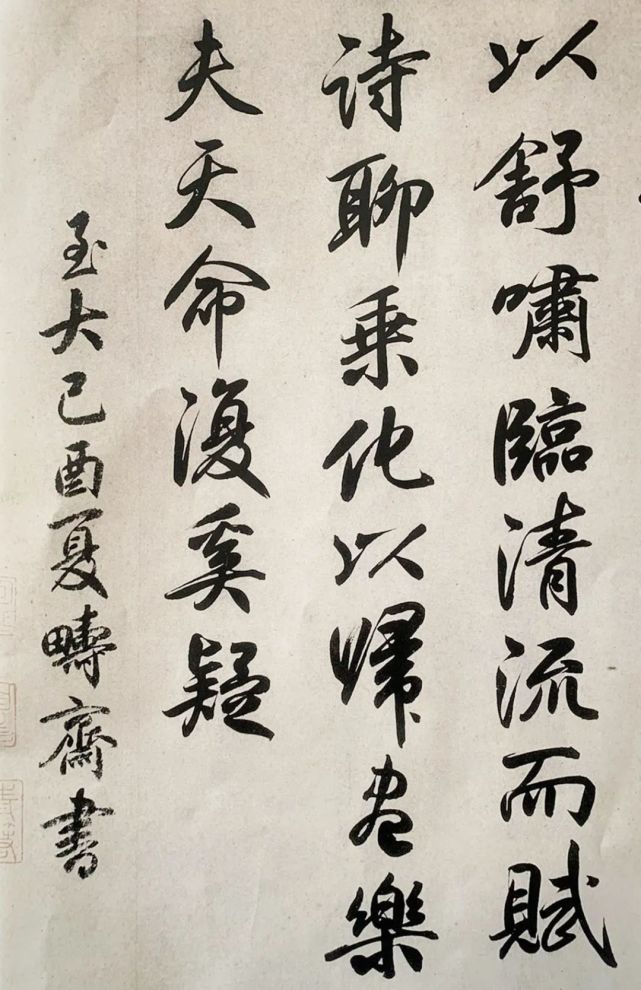 以舒嘯臨清流而賦
詩聊乗化以歸盡樂
夫天命復奚疑
至大己酉夏疇齋書